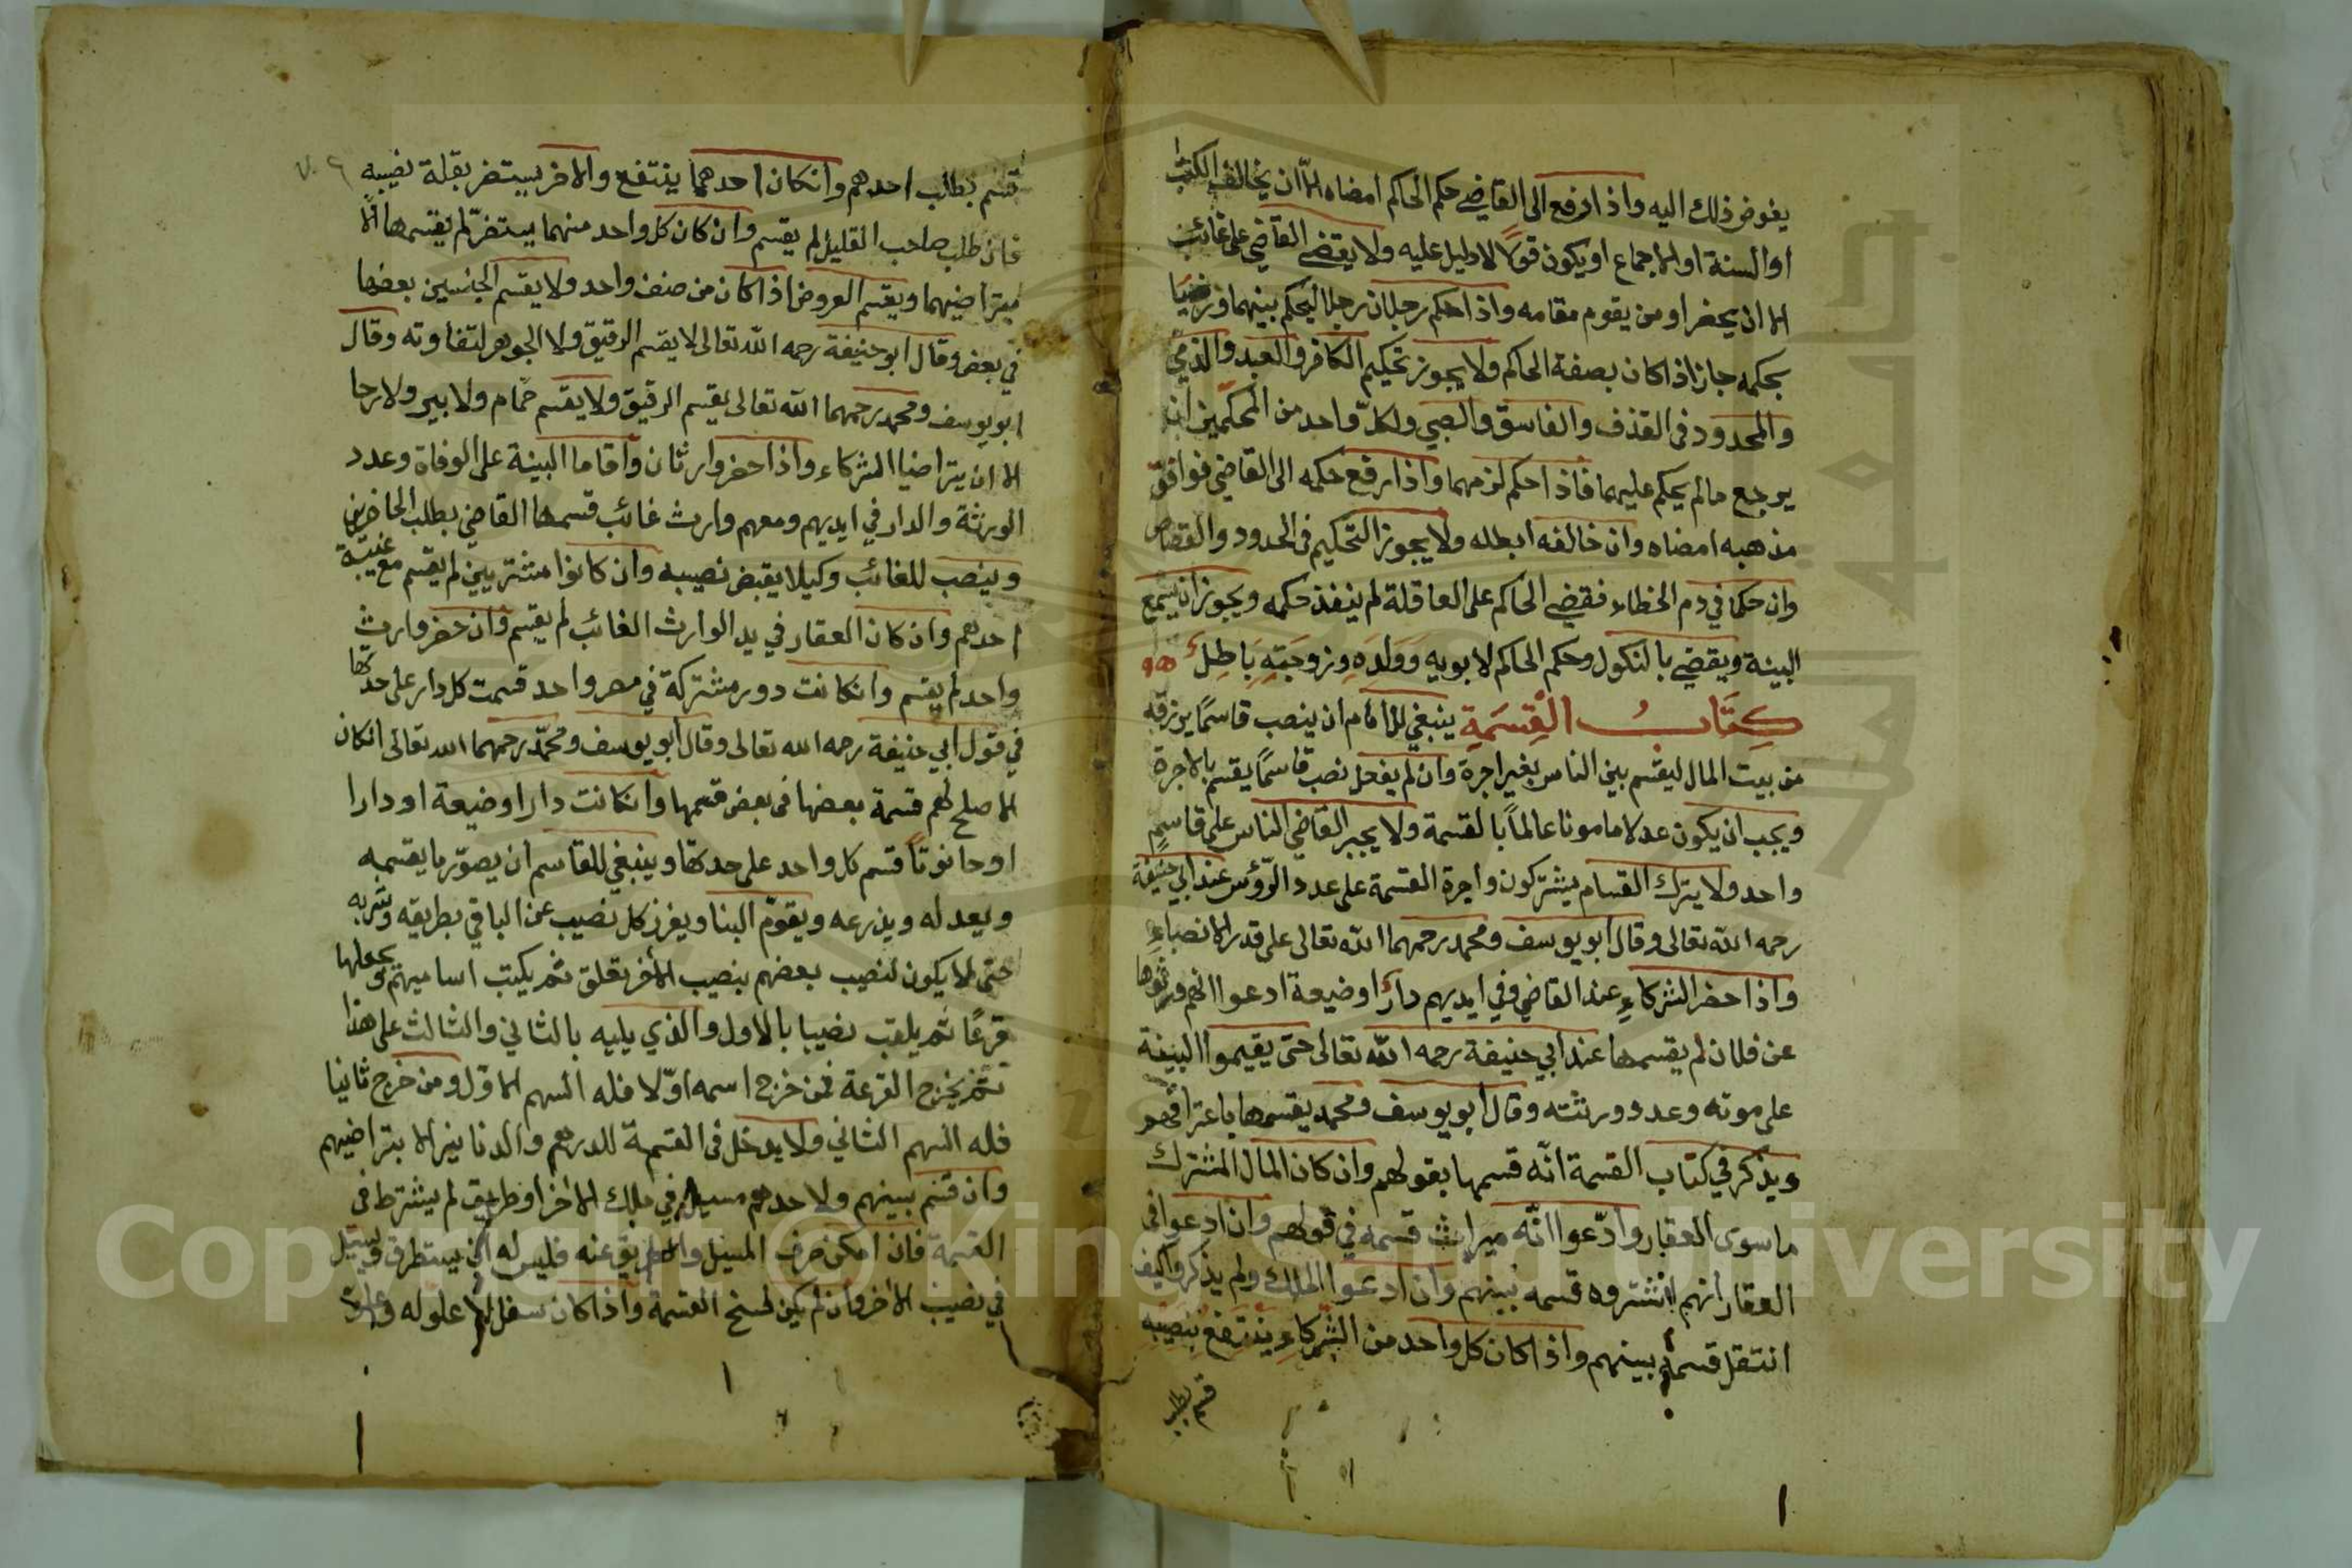 يفوض ذلك اليه واذا رفع الى القاضي حكم الحاكم امضاه الا ان يخالف الكتاب
او السنة او الاجماع او يكون قولا لا دليل عليه ولا يقضي القاضي على غائب
الا ان يحضر او من يقوم مقامه واذا حكم رجلان رجلا ليحكم بينهما ورضيا
بحكمه جاز اذا كان بصفة الحاكم ولا يجوز تحكيم الكافر والعبد والذمي
والمحدود في القذف والفاسق والصبي ولكلّ واحد من المحكّمين ان
يرجع ما لم يحكم عليهما فاذا حكم لزمهما واذا رفع حكمه الى القاضي فوافق
مذهبه امضاه وان خالفه ابطله ولا يجوز التحكيم في الحدود والقصاص
وان حكما في دم الخطاء فقضي الحاكم على العاقلة لم ينفذ حكمه ويجوز ان يسمع
البينة ويقضي بالنكول وحكم الحاكم لابويه وَوَلَدِه وزوجَتِهِ بَاطِلٌ
كِتَابُ القِسْمَةِ ينبغي للامام ان ينصب قاسمًا يرزقه
من بيت المال ليقسم بين الناس بغير اجرة وان لم يفعل نصب قاسمًا يقسم بالاجرة
ويجب ان يكون عدلا مامونا عالماً بالقسمة ولا يجبر القاضي الناس على قاسمٍ
واحد ولا يترك القسام يشتركون واجرة القسمة على عدد الرّؤس عند ابي حنيفة
رحمه الله تعالى وقال ابو يوسف ومحمد رحمهما الله تعالى على قدر الانصباءِ
واذا حضر الشركاءِ عند القاضي وفي ايديهم دارٌ او ضيعة ادعوا انهم ورثوها
عن فلان لم يقسمها عند ابي حنيفة رحمه الله تعالى حتى يقيموا البينة
على موته وعدد ورثته وقال ابو يوسف ومحمد يقسمها باعترافهم
ويذكر في كتاب القسمة انّه قسمها بقولهم وان كان المال المشترك
ما سوى العقار وادّعوا انّه ميراث قسمه في قولهم وان ادعوا في
العقار انهم اشتروه قسمه بينهم وان ادعوا الملك ولم يذكروا كيف
انتقل قسمه بينهم واذا كان كل واحد من الشُّركاءِ ينتفع بنصيبه
قسم بطلب
قسم بطلب احدهم وان كان احدهما ينتفع والاخر يستضر بقلة نصيبه
فان طلب صاحب القليل لم يقسم وان كان كل واحد منهما يستضرّ لم يقسمها الا
بتراضيهما ويقسم العروض اذا كان من صنف واحد ولا يقسم الجنسين بعضها
في بعض وقال ابو حنيفة رحمه الله تعالى لا يقسم الرقيق ولا الجوهر لتفاوته وقال
ابو يوسف ومحمد رحمهما الله تعالى يقسم الرقيق ولا يقسم حمام ولا بير ولا رحا
الا ان يتراضيا الشركاء واذا حضر وارثان واقاما البينة على الوفاة وعدد
الورثة والدار في ايديهم ومعهم وارث غائب قسمها القاضي بطلب الحاضرين
وينصب للغائب وكيلا يقبض نصيبه وان كانوا مشتريين لم يقسم مع غيبة
احدهم وان كان العقار في يد الوارث الغائب لم يقسم وان حضر وارث
واحد لم يقسم وان كانت دور مشتركة في مصر واحد قسمت كل دار على حدتها
في قول ابي حنيفة رحمه الله تعالى وقال ابو يوسف ومحمّد رحمهما الله تعالى ان كان
الاصلح لهم قسمة بعضها في بعض قسمها وان كانت دارا وضيعة او دارا
او حانوتاً قسم كل واحد على حدتها وينبغي للقاسم ان يصوّر ما يقسمه
ويعدله ويذرعه ويقوّم البنا ويفرز كل نصيب عن الباقي بطريقه وشربه
حتى لا يكون لنصيب بعضهم بنصيب الاخر تعلق ثم يكتب اساميهم ويجعلها
قرعًا ثم يلقب نصيبا بالاول والذي يليه بالثاني والثالث على هذا
ثم يخرج القرعة فمن خرج اسمه اوّلا فله السهم الاول ومن خرج ثانيا
فله السهم الثاني ولا يدخل في القسمة للدرهم والدنانير الا بتراضيهم
وان قسم بينهم ولاحدهم مسيل في ملك الاخر او طريق لم يشترط في
القسمة فان امكن صرف المسيل والطريق عنه فليس له ان يستطرق ويسيل
في نصيب الاخر وان لم يكن فسخ القسمة واذا كان سفل لا علو له وعلو
Copyright © King Saud University